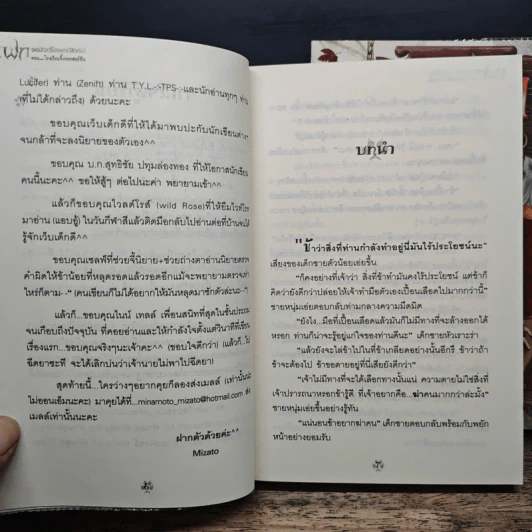 Lucifer) ท่าน (Zenift) ท่าน T.Y.L.->TPS-และนักอ่านทุกๆ ท่าน
ที่ไม่ได้กล่าวถึง) ด้วยนะคะ
ขอบคุณเว็บเด็กดีที่ให้ได้มาพบปะกับนักเขียนต่างๆ
จนกล้าที่จะลงนิยายของตัวเอง^^
ขอบคุณ บ.ก.สุทธิชัย ปทุมล่องทอง ที่ให้โอกาสนักเขียน
คนนี้นะคะ^^ ขอให้สู้ๆ ต่อไปนะค่า พยายามเข้า^^
แล้วก็ขอบคุณไวลด์โรส์ (wild Rose)ที่ให้ยืมไวท์โรส
มาอ่าน (แอบจู้) ในวันกีฬาสีแล้วติดมือกลับไปอ่านต่อที่บ้านจนได้
รู้จักเว็บเด็กดี^^
ขอบคุณเซลฟ์ที่ช่วยจี้นิยาย+ช่วยถ่างตาอ่านนิยายตรวจ
คำผิดให้ข้าน้อยที่หลุดรอดแล้วรอดอีกแม้จะพยายามตรวจเท่า
ไหร่ก็ตาม--" (คนเขียนก็ไม่ได้อยากให้มันหลุดมาซักตัวล่ะนะ--")
แล้วก็...ขอบคุณไนน์ เทลส์ เพื่อนสนิทที่สุดในชั้นประถม
จนเกือบถึงปัจจุบัน ที่คอยอ่านและให้กำลังใจตั้งแต่วินาทีที่เขียน
เรื่องแรก...ขอบคุณจริงๆนะเจ้าคะ^^ (ขอบใจดีกว่า) (แล้วก็..ไป
ฉีดยาซะที จะได้เลิกบ่นว่าเจ้านายไม่พาไปฉีดยา)
สุดท้ายนี้...ใครว่างๆอยากคุยก็ลองส่งเมลล์ (เท่านั้นน่ะ
ไม่ออนเอ็มนะคะ) มาคุยได้ที่...minamoto_mizato@hotmail.com ส่ง
เมลล์เท่านั้นนะคะ
ฝากตัวด้วยค่ะ^^
Mizato
บทนำ
"ข้าว่าสิ่งที่ท่านกำลังทำอยู่นี่มันไร้ประโยชน์นะ"
เสียงของเด็กชายตัวน้อยเอ่ยขึ้น
"ก็คงอย่างที่เจ้าว่า สิ่งที่ข้าทำมันคงไร้ประโยชน์ แต่ข้าก็
คิดว่ายังดีกว่าปล่อยให้เจ้าทำมือตัวเองเปื้อนเลือดไปมากกว่านี้"
ชายหนุ่มเอ่ยตอบกลับท่ามกลางความมืดมิด
"ยังไง...มือที่เปื้อนเลือดแล้วมันก็ไม่มีทางที่จะล้างออกได้
หรอก ท่านก็น่าจะรู้อยู่แก่ใจของท่านดีนะ" เด็กชายหัวเราะร่า
"แล้วยังจะใส่ข้าไปในที่ข้าเกลียดอย่างนั้นอีกรึ ข้าว่าถ้า
ข้าจะต้องไป ข้าขอตายอยู่ที่นี่เสียยังดีกว่า"
"เจ้าไม่มีทางที่จะได้เลือกทางนั้นแน่ ความตายไม่ใช่สิ่งที่
เจ้าปรารถนาหรอกข้ารู้ดี ที่เจ้าอยากคือ...ฆ่าคนมากกว่าล่ะมั้ง"
ชายหนุ่มเอ่ยขึ้นอย่างรู้ทัน
"แน่นอนข้าอยากฆ่าคน" เด็กชายตอบกลับพร้อมกับพยัก
หน้าอย่างยอมรับ